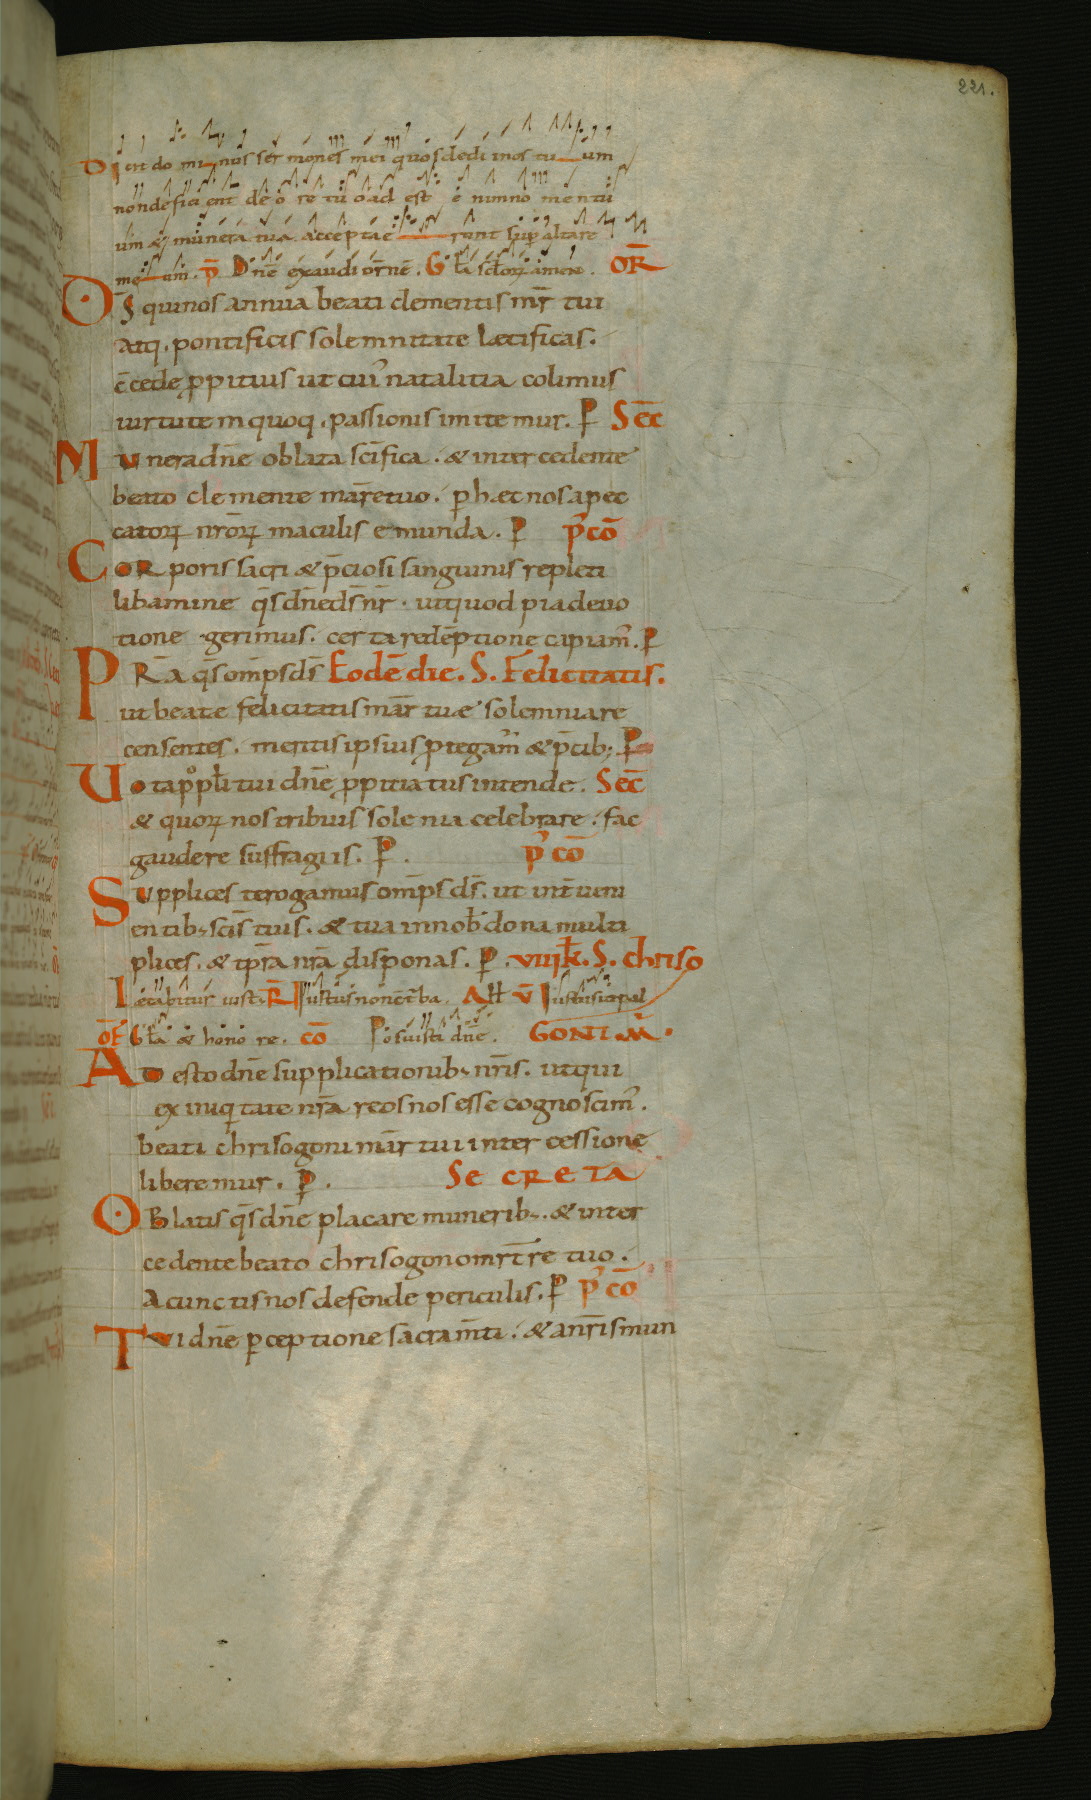 221.
Dicit do mi nus ser mones mei quos dedi in os tu um
non defici ent de o re tuo ad est e nim no men tuū
um & munera tua accepta e runt sup altare
me um. p̄ Dn̄e exaudi or̄nē. Gl̄a sc̄lorꝝ amen. OR̄
D̄s qui nos annua beati clementis mr̄ tui
atq. pontificis solemnitate lætificas.
c̄cede p̱pitius ut cui' natalitia colimus
uirtutem quoq. passionis imitemur. P̱ SEC̄
Munera dn̄e oblata sc̄ifica. & intercedente
beato clemente mar̄e tuo. p̱ hæc nos a pec
catorꝝ nr̄orꝝ maculis emunda. P̱ p' cō
Corporis sacri & p̄ciosi sanguinis repleti
libamine q̄s dn̄e ds̄ nr̄. ut quod pia deuo
tione gerimus. certa redēptione capiam'. P̱
PR̄A q̄s omp̄s ds̄ Eodē die. S. Felicitatis.
ut beatę felicitatis mār tuæ solemnia re
censentes. meritis ipsius p̱tegam' & p̄cib; P̱
Uota pop̄li tui dn̄e p̱pitiatus intende. SEC̄
& quorꝝ nos tribuis solēnia celebrare. fac
gaudere suffragiis. P̱. p' cō
Supplices te rogamus omp̄s ds̄. ut int̄ueni
entib; sc̄is tuis. & tua in nob' dona multi
plices. & tp̄ra nr̄a disponas. P̱. VIIIK̄. S. chriso
Lætabitur iust. R̄ Iustus non c̄t̄ba. All̄ V̄ Iustus ut pal
OF̄ Gl̄a & hono re. cō Posuisti dn̄e. GONI. M̄.
Adesto dn̄e supplicationib; nr̄is. ut qui
ex iniq'tate nr̄a reos nos esse cognoscim'.
beati chrisogoni mār tui intercessione
liberemur. P̱. SECRETA
Oblatis q̄s dn̄e placare munerib;. & inter
cedente beato chrisogono mr̄t̄re tuo.
a cunctis nos defende periculis. P̱ p' cō
Tui dn̄e p̱ceptione sacram̄ti. & a nr̄is mun